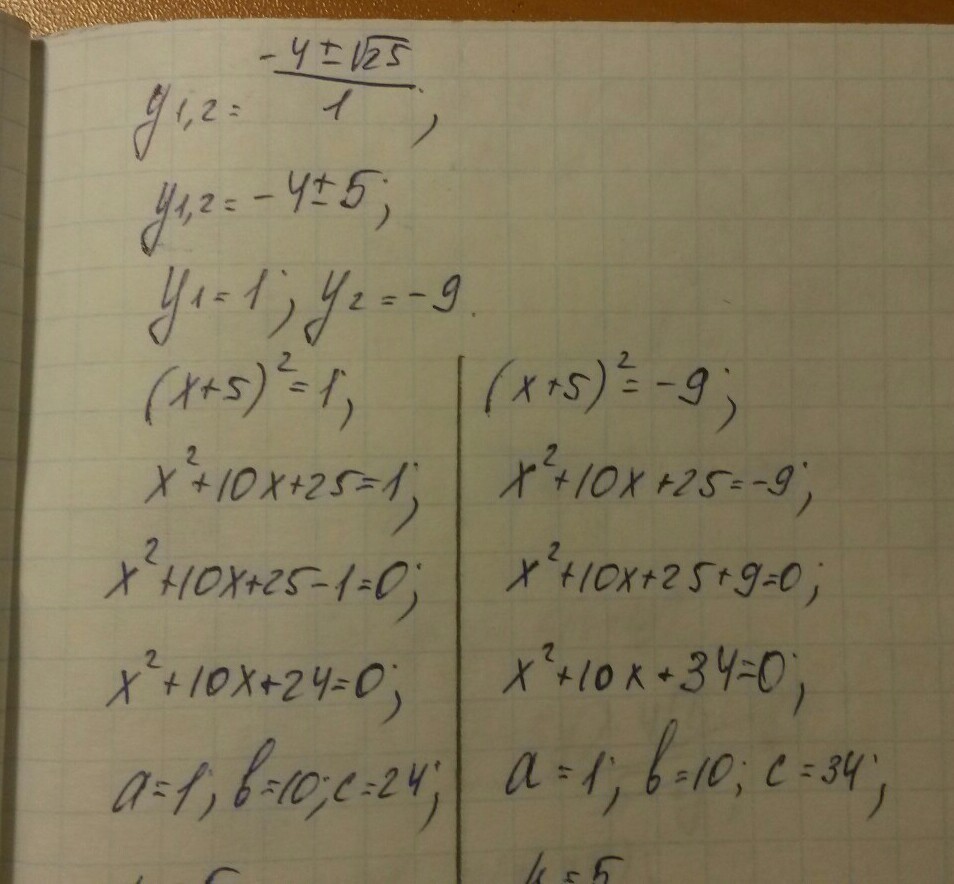 y1,2 = (-4 ± √25) / 1 ;
y1,2 = -4 ± 5 ;
y1 = 1 ; y2 = -9 .
(x+5)² = 1 ;
x² + 10x + 25 = 1 ;
x² + 10x + 25 - 1 = 0 ;
x² + 10x + 24 = 0 ;
a = 1 ; b = 10 ; c = 24 ;
(x+5)² = -9 ;
x² + 10x + 25 = -9 ;
x² + 10x + 25 + 9 = 0 ;
x² + 10x + 34 = 0 ;
a = 1 ; b = 10 ; c = 34 ;
k = 5